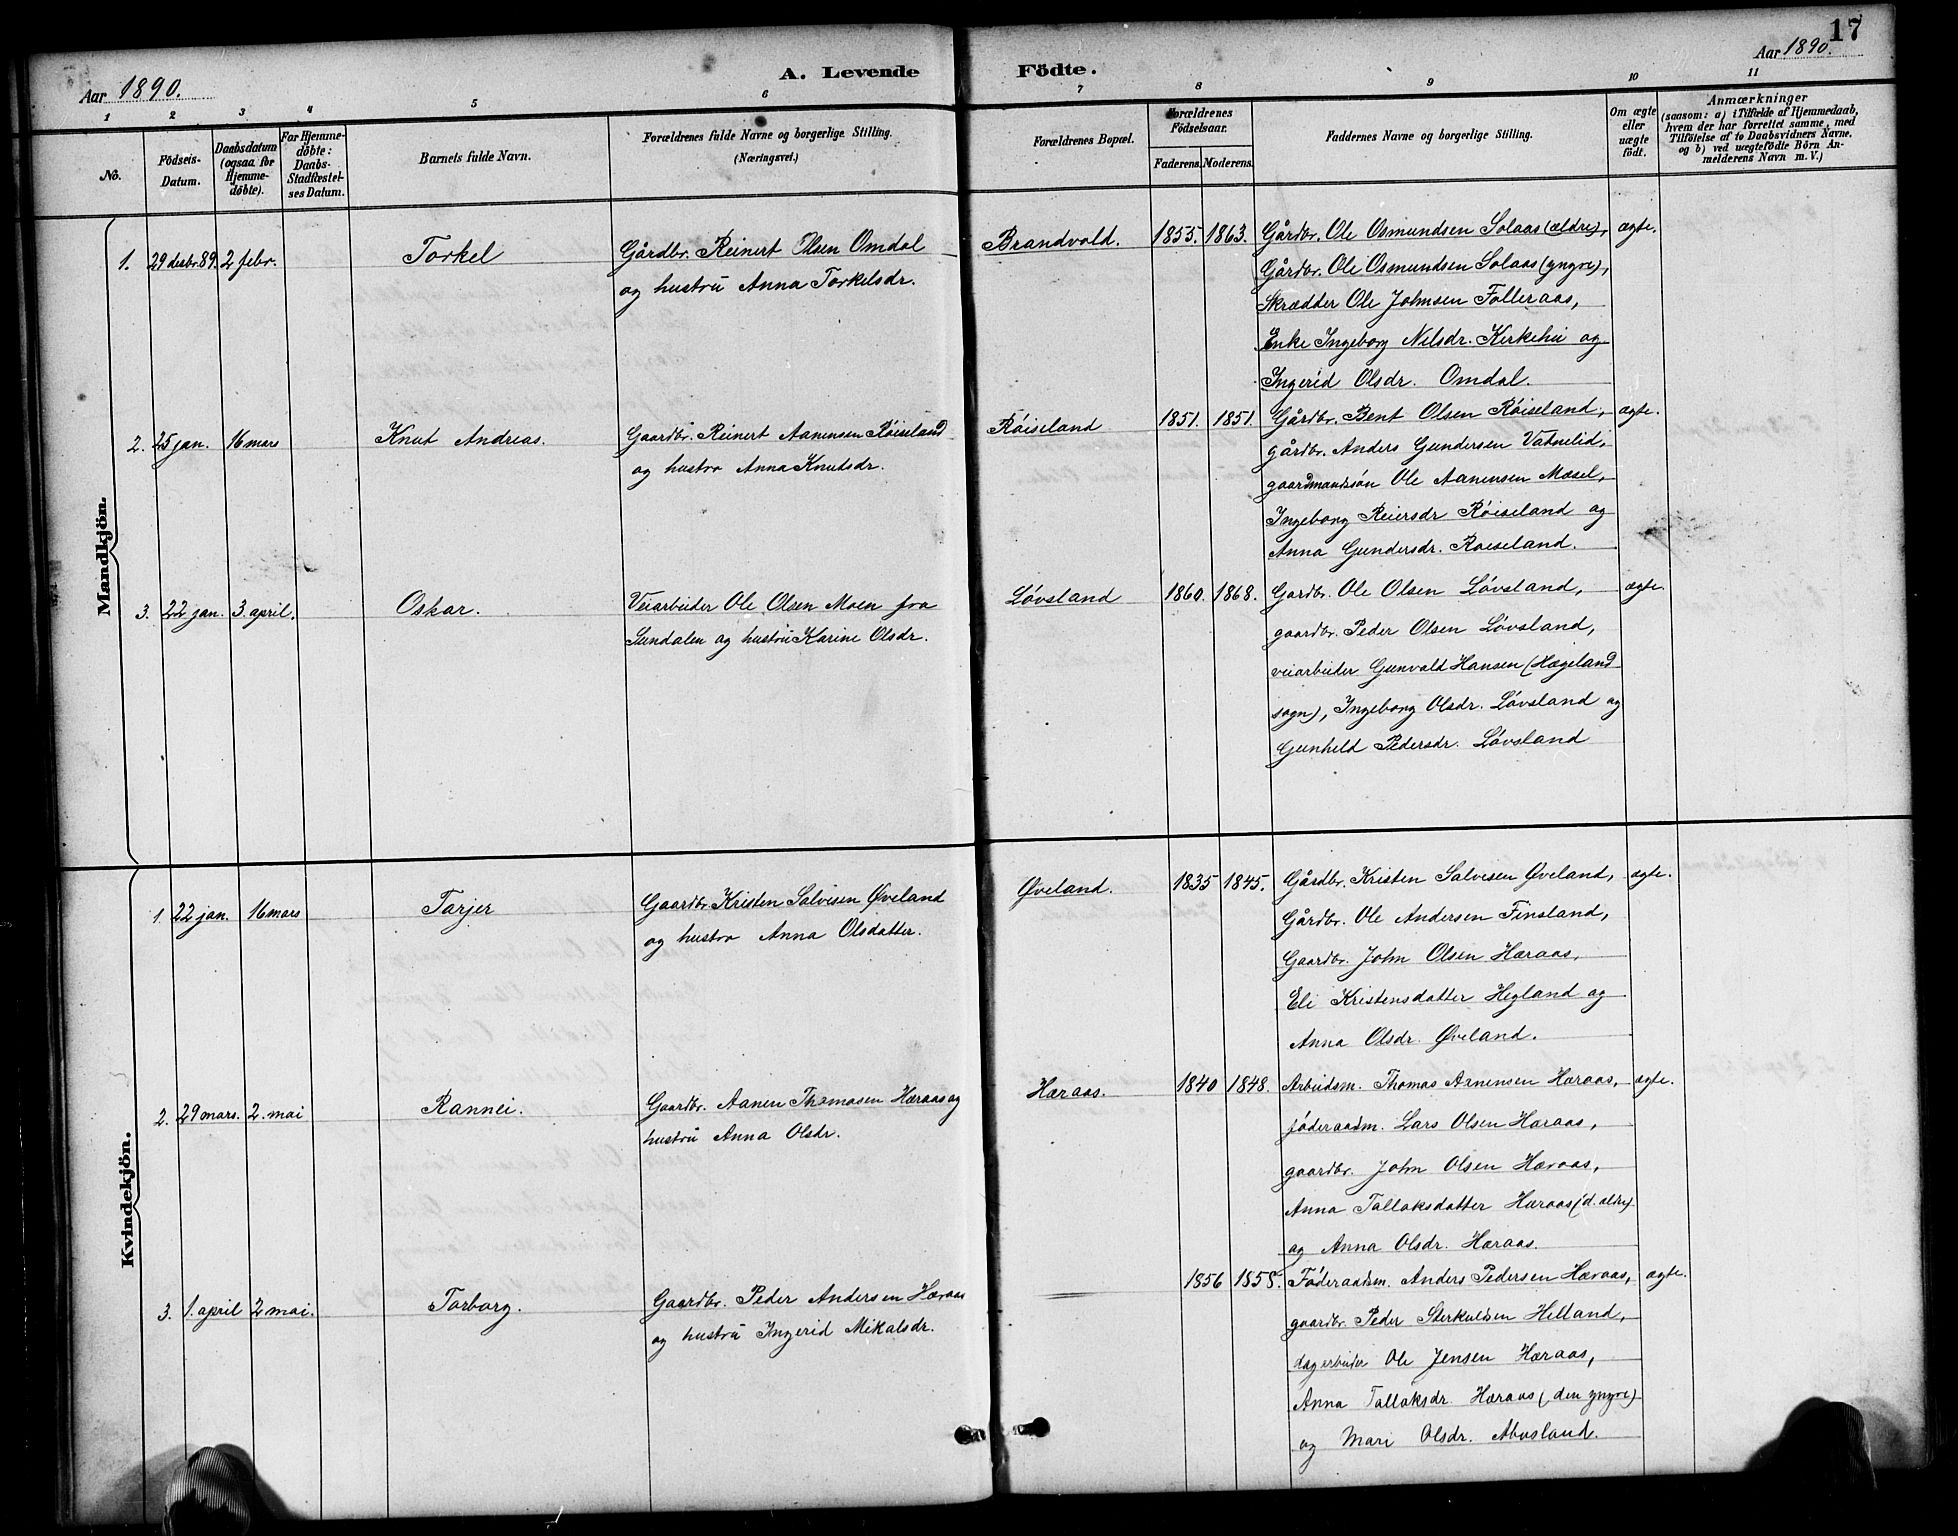 17
Aar 1890.
A. Levende Födte.
Aar 1890.
1 2 3 4 5 6 7 8 9 10 11
No.
Födsels-
Datum.
Daabsdatum
(ogsaa for
Hjemme-
döbte).
For Hjemme-
döbte:
Daabs-
Stadfæstel-
ses Datum.
Barnets fulde Navn.
Forældrenes fulde Navne og borgerlige Stilling.
(Næringsvei.)
Forældrenes Bopæl.
Forældrenes
Födselsaar.
Faderens. Moderens.
Faddernes Navne og borgerlige Stilling.
Om ægte
eller
uægte
födt.
Anmærkninger
(saasom: a) i Tilfælde af Hjemmedaab,
hvem der har forrettet samme, med
Tilföielse af to Daabsvidners Navne,
og b) ved uægtefödte Börn An-
melderens Navn m. V.)
Mandkjön.
1. 29 desbr. 89. 2 febr. Torkel
Gårdbr. Reinert Olsen Omdal
og hustru Anna Torkelsdr.
Brandvold. 1855. 1863.
Gårdbr. Ole Osmundsen Solaas (ældre), ægte.
Gårdbr. Ole Osmundsen Solaas (yngre),
Skrædder Ole Johnsen Folleraas,
Enke Ingeborg Nilsdr. Kirkehei og
Ingerid Olsdr. Omdal.
2. 25 jan. 16 mars Knut Andreas.
Gaardbr. Reinert Aanensen Røiseland
og hustro Anna Knutsdr.
Røiseland 1851. 1851.
Gårdbr. Bent Olsen Røiseland, ægte.
gårdbr. Anders Gundersen Vatnelid,
gaardmandssøn Ole Aanensen Mosel,
Ingeborg Reiersdr Røiseland og
Anna Gundersdr. Røiseland.
3. 22 jan. 3 april. Oskar.
Veiarbeider Ole Olsen Moen fra
Sundalen og hustru Karine Olsdr.
Løvsland 1860. 1868.
Gardbr. Ole Olsen Løvsland, ægte.
gaardbr. Peder Olsen Løvsland,
veiarbeider Gunvald Hansen (Hægeland
sogn), Ingeborg Olsdr. Løvsland og
Gunheld Pedersdr. Løvsland
Kvindekjön.
1. 22 jan. 16 mars Tarjer
Gaardbr Kristen Salvesen Øveland
og hustro Anna Olsdatter.
Øveland. 1835 1845.
Gårdbr. Kristen Salvesen Øveland, ægte.
Gårdbr. Ole Andersen Finsland,
Gaardbr. John Olsen Hæraas,
Eli Kristensdatter Hegland og
Anna Olsdr. Øveland.
2. 29 mars. 2. mai Rannei.
Gaardbr. Aanen Thomasen Hæraas og
hustru Anna Olsdr.
Hæraas. 1840 1848.
Arbeidsm. Thomas Aanensen Hæraas, ægte.
føderaadm. Lars Olsen Hæraas,
gaardbr. John Olsen Hæraas,
Anna Tallaksdatter Hæraas (d. ældre)
og Anna Olsdr. Hæraas.
3. 1. april 2 mai. Torborg.
Gaardbr. Peder Andersen Hæraas
og hustru Ingerid Mikalsdr.
1856 1858.
Føderaadsm. Anders Pedersen Hæraas, ægte.
gaardbr. Peder Sterkuldsen Helland,
dagarbeider Ole Jensen Hæraas,
Anna Tallaksdr. Hæraas (den yngre)
og Mari Olsdr. Abusland.